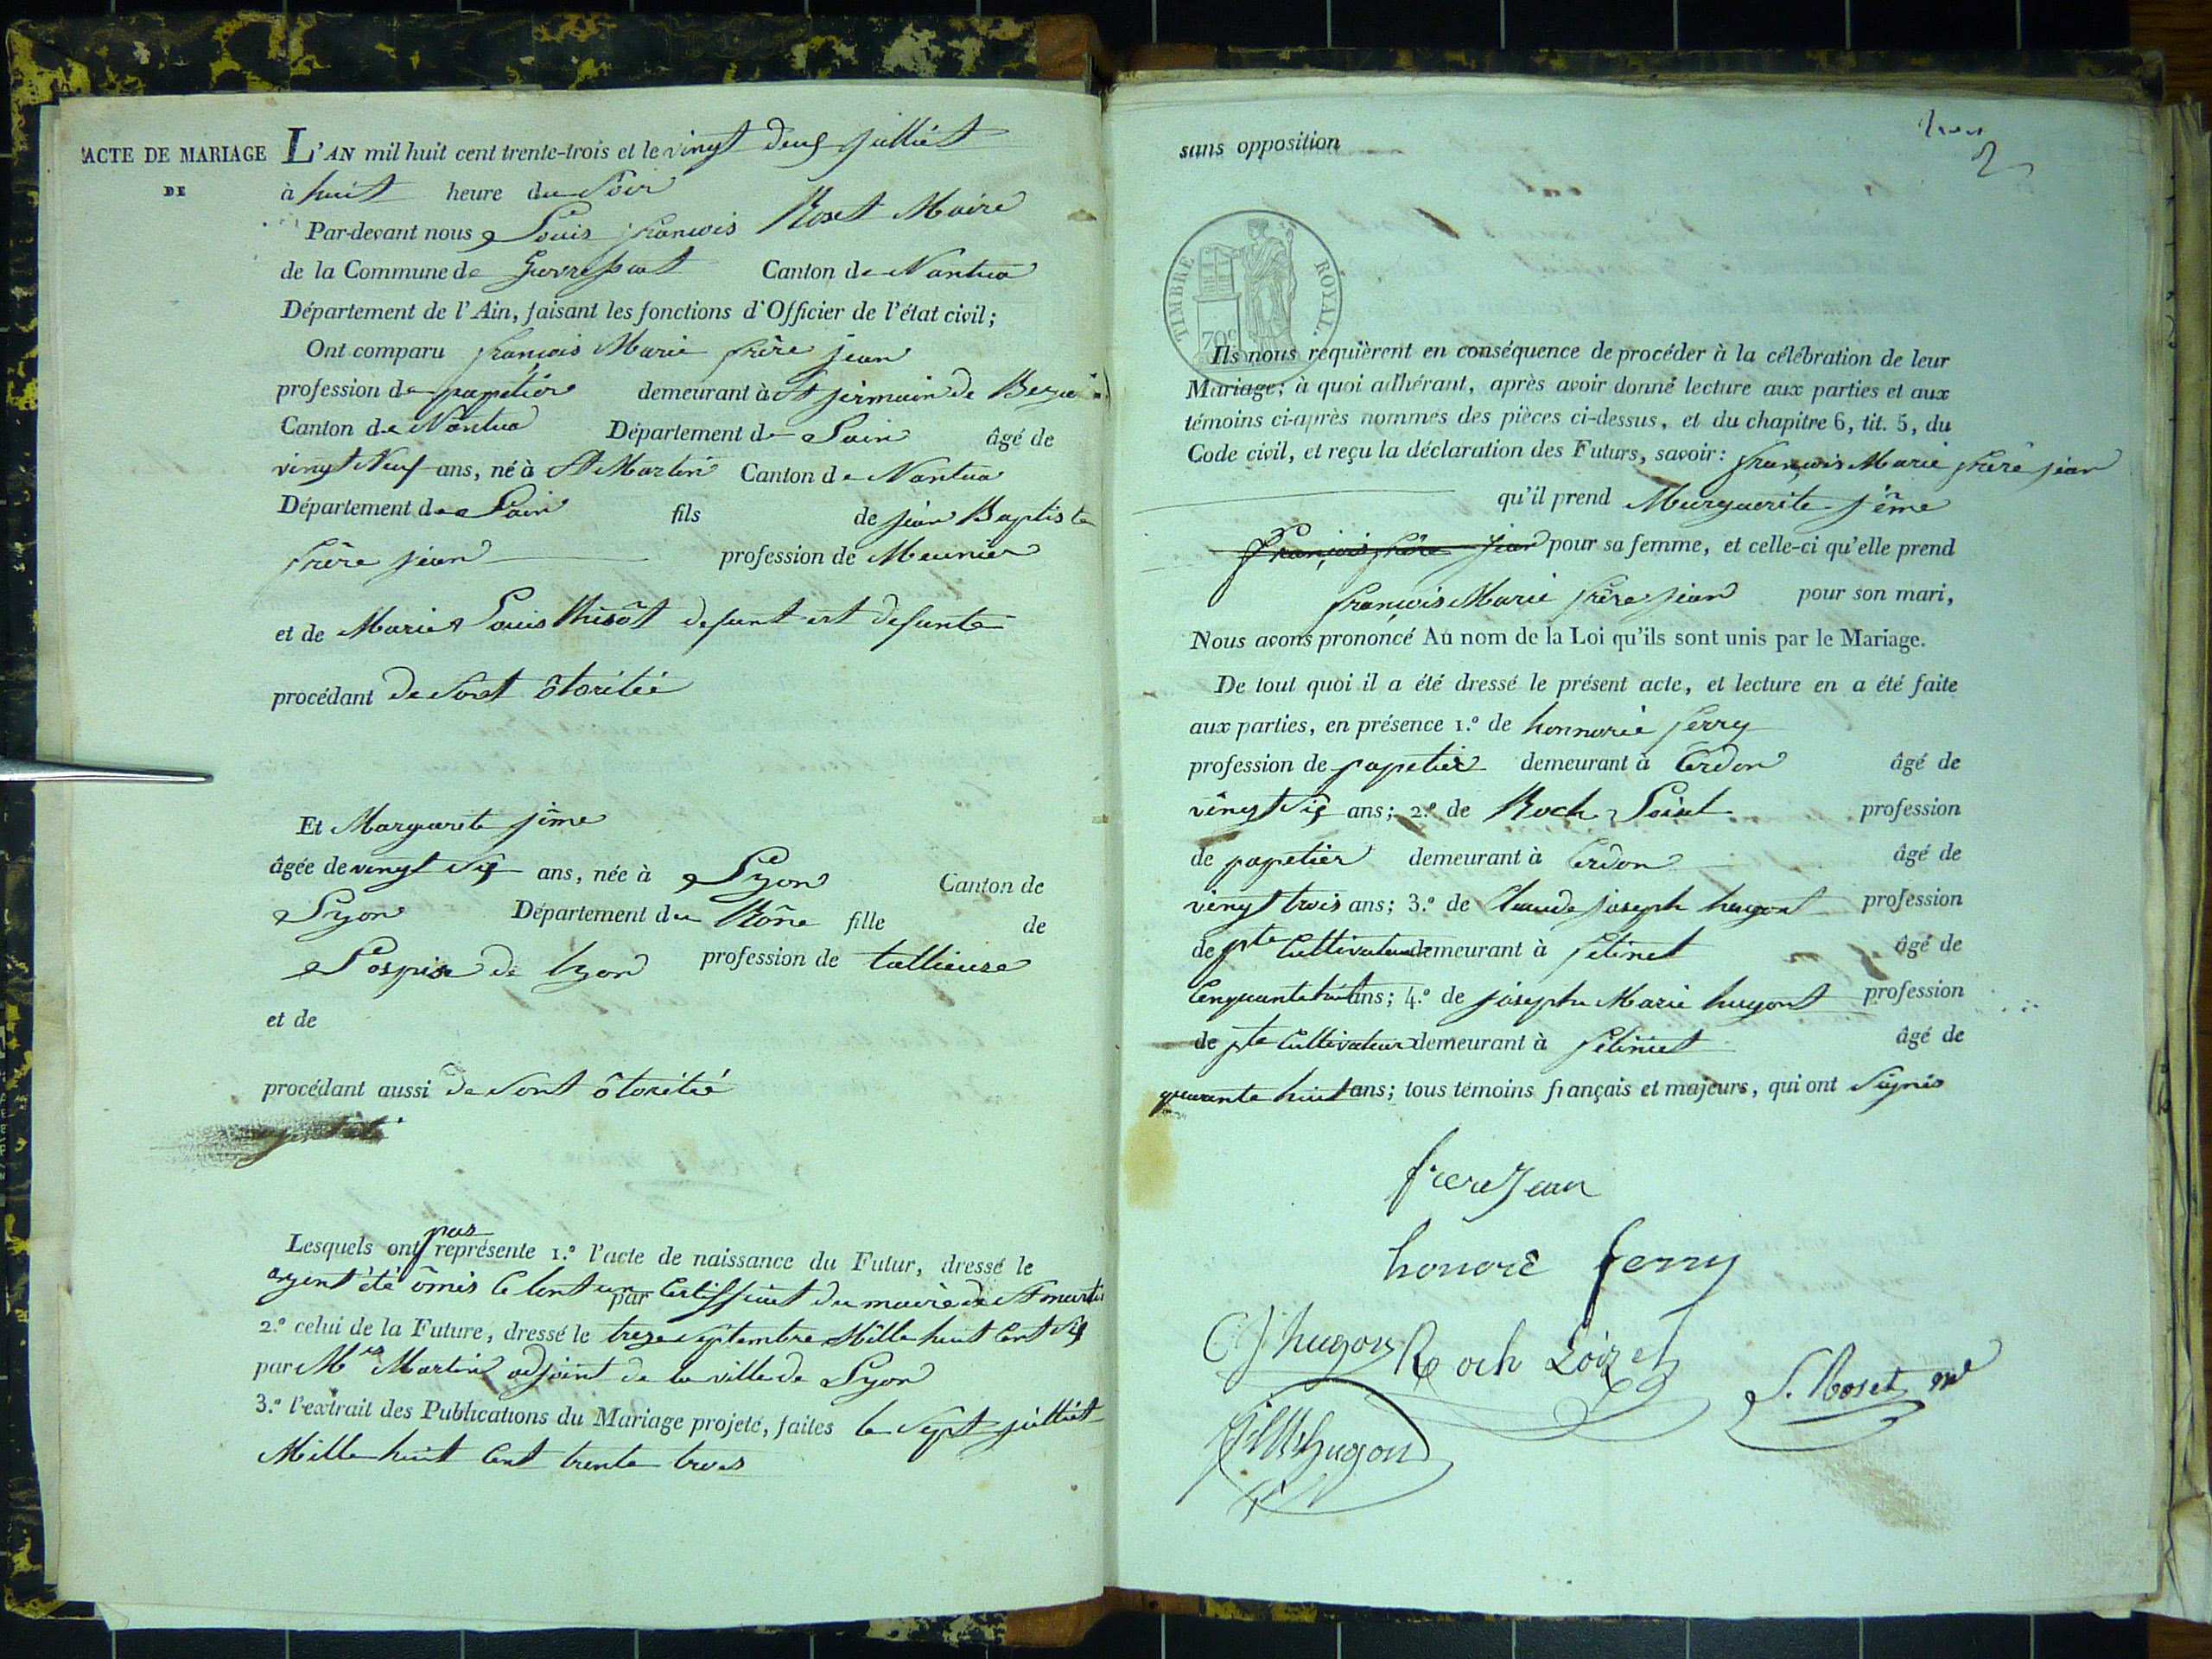 ACTE DE MARIAGE
DE
L'AN mil huit cent trente-trois et le vingt deux julliét
à huit heure du Soir
Par-devant nous Louis françois Roset Maire
de la Commune de Canton de Nantua
Département de l'Ain, faisant les fonctions d'Officier de l'état civil;
Ont comparu françois Marie frère jean
profession de papetier demeurant à St jermain de
Canton de Nantua Département de Lain âgé de
vingt Neuf ans, né à St Martin Canton de Nantua
Département de Lain fils de jean Baptiste
frère jean profession de Meunier
et de Marie Louis defunt est defunte
procédant de Sont ôtoritée
Et Marguerite jême
âgée de vingt Six ans, née à Lyon Canton de
Lyon Département du Rône fille de
Lospise de Lyon profession de tallieuse
et de
procédant aussi de Sont ôtoritée
pas
Lesquels ont représente 1.º l'acte de naissance du Futur, dressé le
ayent été ômis par Certifficat du maire de St martin
2.º celui de la Future, dressé le treze Septembre Mille huit Cent Six
par Mr Martin adjoint de la ville de Lyon
3.º l'extrait des Publications du Mariage projeté, faites le Sept julliét
Mille huit Cent trente trois
sans opposition
2
TIMBRE ROYAL.
70c
Ils nous requièrent en conséquence de procéder à la célébration de leur
Mariage; à quoi adhérant, après avoir donné lecture aux parties et aux
témoins ci-après nommés des pièces ci-dessus, et du chapitre 6, tit. 5, du
Code civil, et reçu la déclaration des Futurs, savoir: françois Marie frère jean
qu'il prend Marguerite jême
françois frère jean pour sa femme, et celle-ci qu'elle prend
françois Marie frère jean pour son mari,
Nous avons prononcé Au nom de la Loi qu'ils sont unis par le Mariage.
De tout quoi il a été dressé le présent acte, et lecture en a été faite
aux parties, en présence 1.º de honnorée ferry
profession de papetier demeurant à Cerdon âgé de
vingt Six ans; 2.º de Roch Loiset profession
de papetier demeurant à Cerdon âgé de
vingt trois ans; 3.º de Claude joseph hugont profession
de pte Cultivateur demeurant à âgé de
Cenquante huit ans; 4.º de joseph Marie hugont profession
de pte Cultivateur demeurant à âgé de
quarante huit ans; tous témoins français et majeurs, qui ont Signés
frereJean
honoré ferry
C J hugon Roch Loizet
L. Roset me
J M hugon